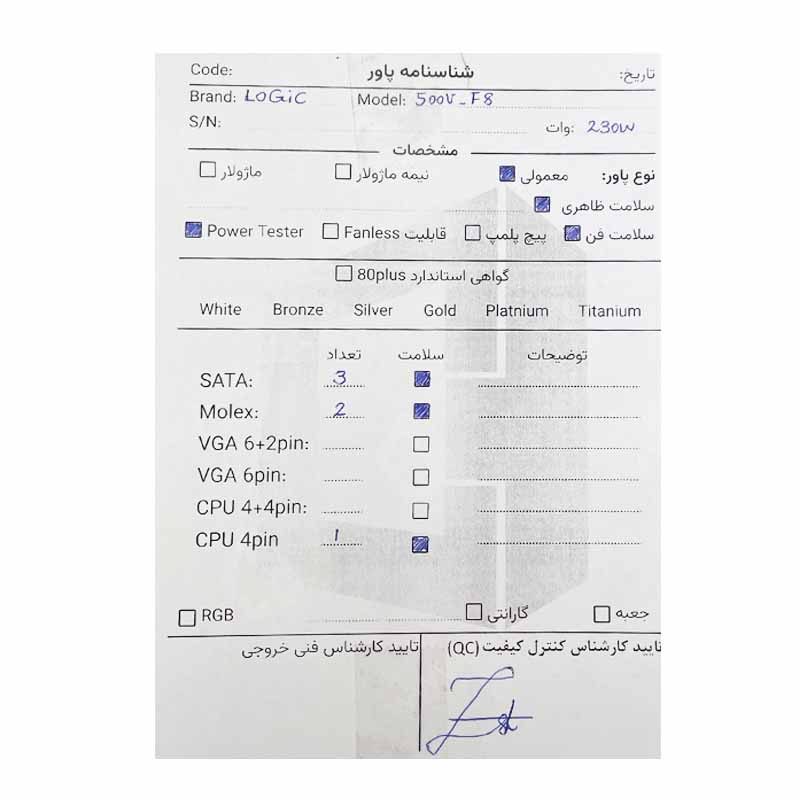 Code: شناسنامه پاور تاریخ:
Brand: LOGiC Model: 500V_F8
S/N: وات: 230W
مشخصات
نوع پاور: معمولی نیمه ماژولار ماژولار
سلامت ظاهری
سلامت فن پیچ پلمپ قابلیت Fanless Power Tester
گواهی استاندارد 80plus
White Bronze Silver Gold Platnium Titanium
تعداد سلامت توضیحات
SATA: 3
Molex: 2
VGA 6+2pin:
VGA 6pin:
CPU 4+4pin:
CPU 4pin 1
RGB گارانتی جعبه
تایید کارشناس کنترل کیفیت (QC) تایید کارشناس فنی خروجی